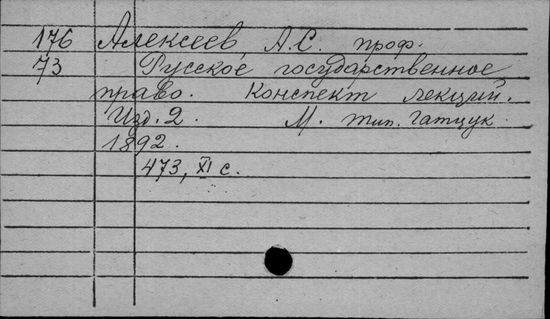 176 Алексеев, А.С. проф.
73 Русское государственное
право. Конспект лекций.
Изд. 2. М. тип. Гатцук.
1892.
473, XI с.